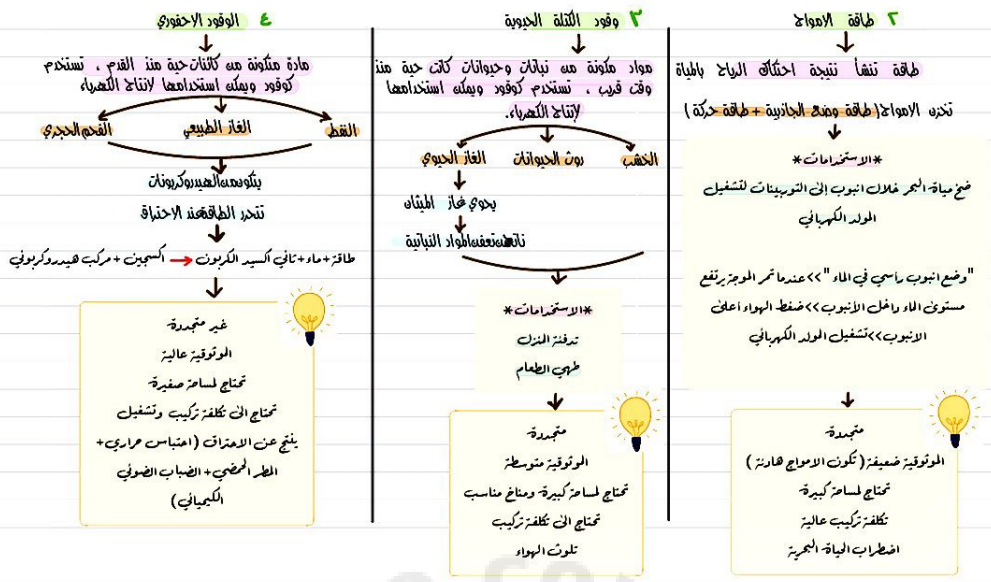 ٢ طاقة الامواج
طاقة تنشأ نتيجة احتكاك الرياح بالمياة
تخزن الامواج ( طاقة وضع الجاذبية + طاقة حركة )
*الاستخدامات*
ضخ مياة البحر خلال انبوب إلى التوربينات لتشغيل
المولد الكهربائي
"وضع انبوب رأسي في الماء ">>عندما تمر الموجة يرتفع
مستوى الماء داخل الأنبوب>>ضغط الهواء أعلى
الانبوب>>تشغيل المولد الكهربائي
متجددة
الموثوقية ضعيفة ( تكون الامواج هادئة )
تحتاج لمساحة كبيرة
تكلفة تركيب عالية
اضطراب الحياة البحرية
٣ وقود الكتلة الحيوية
مواد مكونة من نباتات وحيوانات كانت حية منذ
وقت قريب ، تستخدم كوقود ويمكن استخدامها
لإنتاج الكهرباء.
الخشب روث الحيوانات الغاز الحيوي
يحوي غاز الميثان
ناتج من تعفن المواد النباتية
*الاستخدامات*
تدفئة المنزل
طهي الطعام
متجددة
الموثوقية متوسطة
تحتاج لمساحة كبيرة ومناخ مناسب
تحتاج الى تكلفة تركيب
تلوث الهواء
٤ الوقود الاحفوري
مادة متكونة من كائنات حية منذ القدم ، تستخدم
كوقود ويمكن استخدامها لانتاج الكهرباء
النفط الغاز الطبيعي الفحم الحجري
يتكون من الهيدروكربونات
تتحرر الطاقة عند الاحتراق
اكسجين + مركب هيدروكربوني → طاقة + ماء + ثاني اكسيد الكربون
غير متجددة
الموثوقية عالية
تحتاج لمساحة صغيرة
تحتاج الى تكلفة تركيب وتشغيل
ينتج عن الاحتراق ( احتباس حراري +
المطر الحمضي + الضباب الضوئي
الكيميائي )